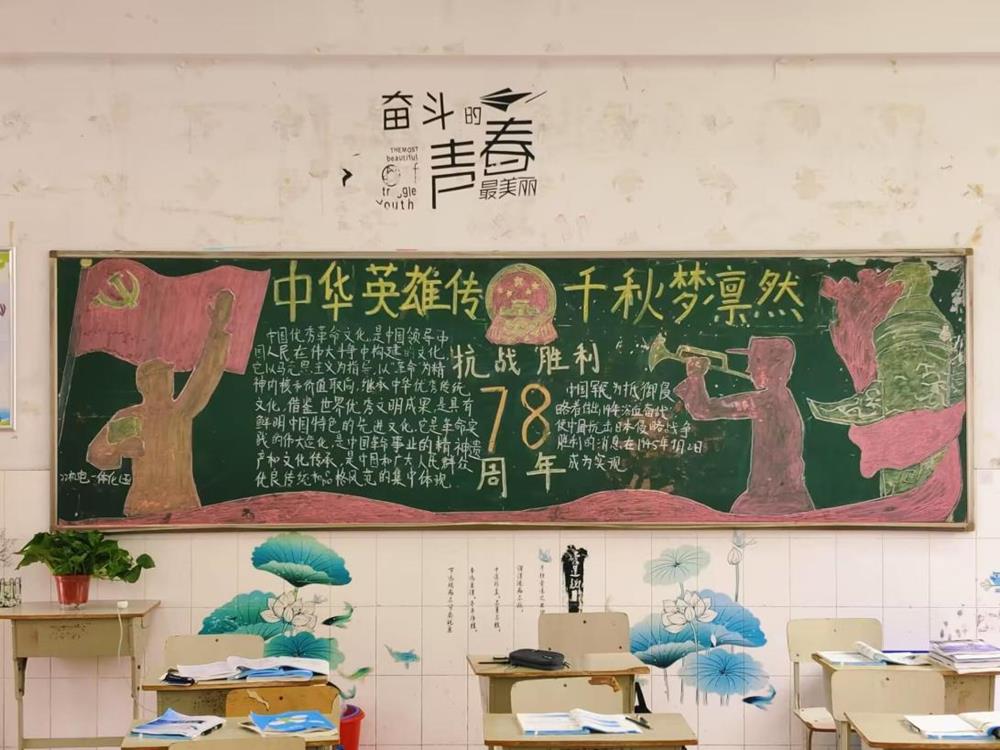 奋斗的
青春
最美丽
THEMOST
beautiful
youth
中华英雄传 千秋梦凛然
抗战胜利
78
周年
中国优秀革命文化,是中国领导中
国人民在伟大斗争中构建的文化,
它以马 思主义为指导,以革命为精
神内核和价值取向,继承中华优秀传统
文化,借鉴世界优秀文明成果,是具有
鲜明中国特色的先进文化,它是革命实
践的伟大 ,是中国革命事业的精神遗
产和文化传承,是中国和广大人民群众
优良传统和品格风范的集中体现
中国军民为抵御侵
略者付出
使中国抗击日本侵略战争
胜利的消息在1945年 月 日
成为实现
机电一体化